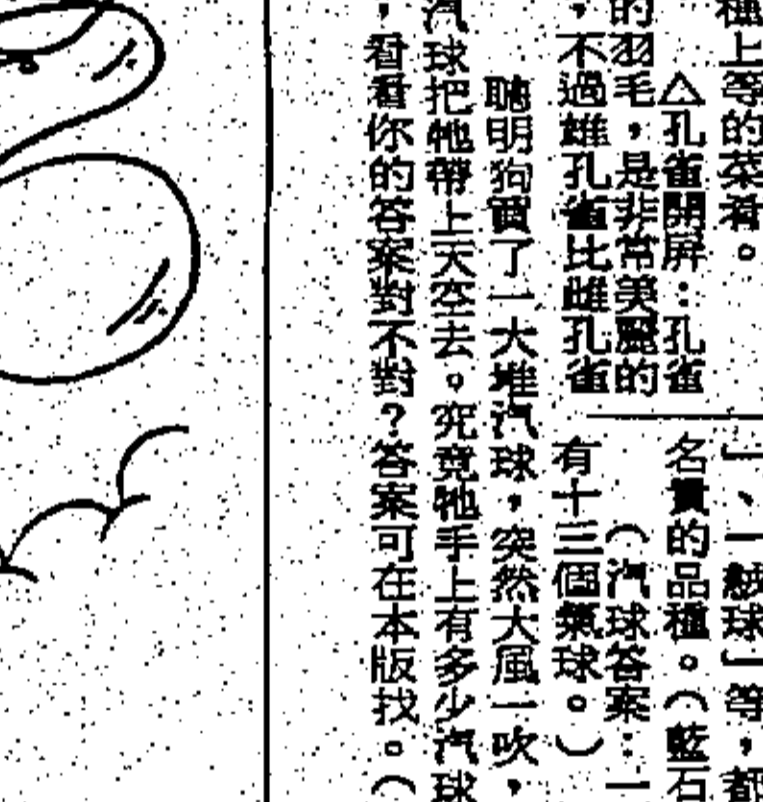 種上等的菜肴。
△孔雀開屏：孔雀
的羽毛，是非常美麗的
，不過雄孔雀比雌孔雀
」、「絨球」等，都
名貴的品種。（藍石
（汽球答案：一
有十三個氣球。）
聰明狗買了一大堆汽球，突然大風一吹，
汽球把牠帶上天空去。究竟牠手上有多少汽球
，看看你的答案對不對？答案可在本版找。（